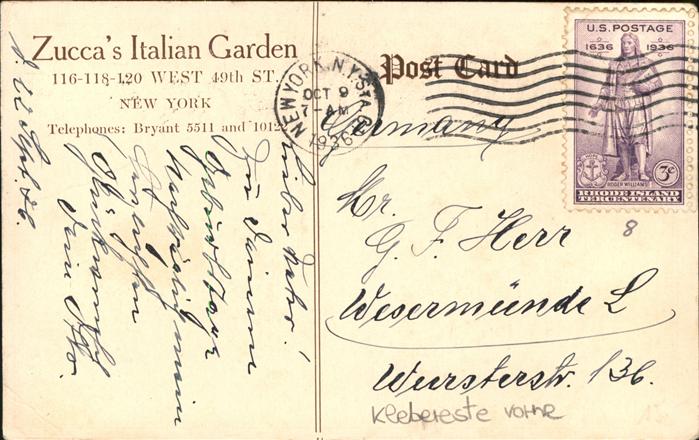 Zucca's Italian Garden
116-118-120 WEST 49th ST.,
NEW YORK
Telephones: Bryant 5511 and 1012
Post Card
NEW YORK, N.Y. STA.
OCT 9
7-AM
1936
U.S. POSTAGE
1636 1936
ROGER WILLIAMS
3¢
RHODE ISLAND
TERCENTENARY
Germany
Mr.
G. F. Herr
Wesermünde L
Wursterstr. 136.
8
Klebereste vorne
Lieber Vater!
Zu Deinem
Geburtstage
nachträglich meine
Dein